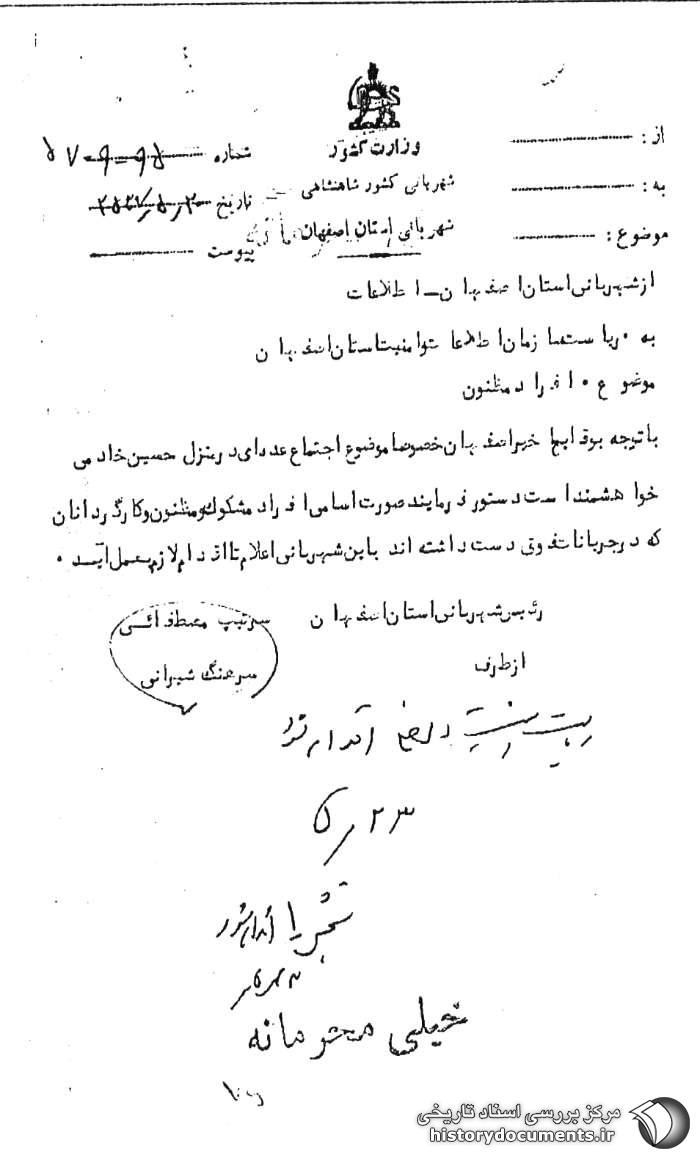 وزارت کشور
شهربانی کشور شاهنشاهی
شهربانی استان اصفهان
از :
به :
موضوع :
شماره
تاریخ ۲۵۳۷/۵/۲۰
پیوست
از شهربانی استان اصفهان ـ اطلاعات
به ۰ ریاست سازمان اطلاعات و امنیت استان اصفهان
موضوع ۰ افراد مظنون
با توجه بوقایع اخیر اصفهان خصوصا موضوع اجتماع عده‌ای در منزل حسین خادمی
خواهشمند است دستور فرمایند صورت اسامی افراد مشکوک و مظنون و کارگردانان
که در جریانات فوق دست داشته اند باین شهربانی اعلام تا اقدام لازم بعمل آید ۰
رئیس شهربانی استان اصفهان سرتیپ مصطفائی
از طرف سرهنگ شیرانی
اقدام شود
۲۳/۵
بخش ۱ اقدام شود
خیلی محرمانه
مرکز بررسی اسناد تاریخی
historydocuments.ir